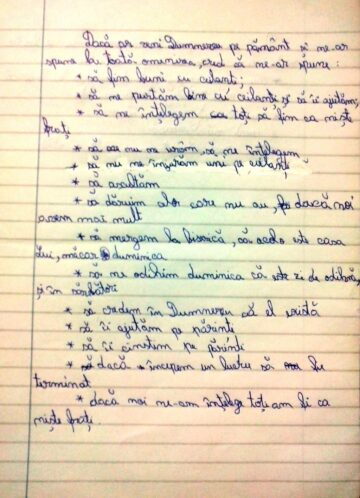 Dacă ar veni Dumnezeu pe pământ și ne-ar
spune la toată omenirea, cred că ne-ar spune:
* să fim buni cu ceilanți;
* să ne purtăm bine cu ceilanți și să îi ajutăm;
* să ne înțelegem ca toți să fim ca niște
frați
* să nu ne urâm, să ne înțelegem
* să nu ne înjurăm unii pe ceilanți
* să ascultăm
* să dăruim alor care nu au, dacă noi
avem mai mult
* să mergem la biserică, că acolo este casa
Lui, măcar duminica
* să ne odihim duminica că este zi de odihnă,
și în sărbători
* să credem în Dumnezeu că el există
* să îi ajutăm pe părinți
* să îi cinstim pe părinți
* dacă începem un lucru să fie
terminat
* dacă noi ne-am înțelege toți am fi ca
niște frați.